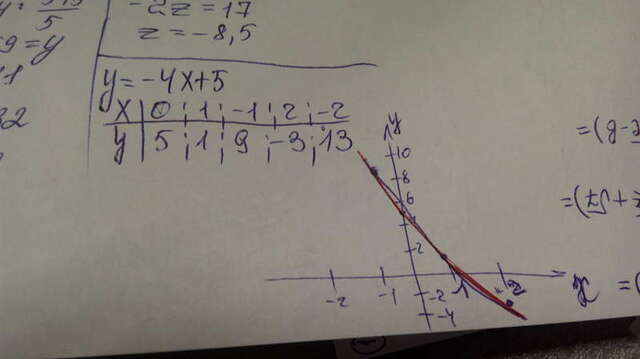 5
9=y
-2z=17
z=-8,5
y=-4x+5
x | 0 ; 1 ; -1 ; 2 ; -2
y | 5 ; 1 ; 9 ; -3 ; 13
y
10
8
6
4
2
-2 -1 1 2 x
-2
-4